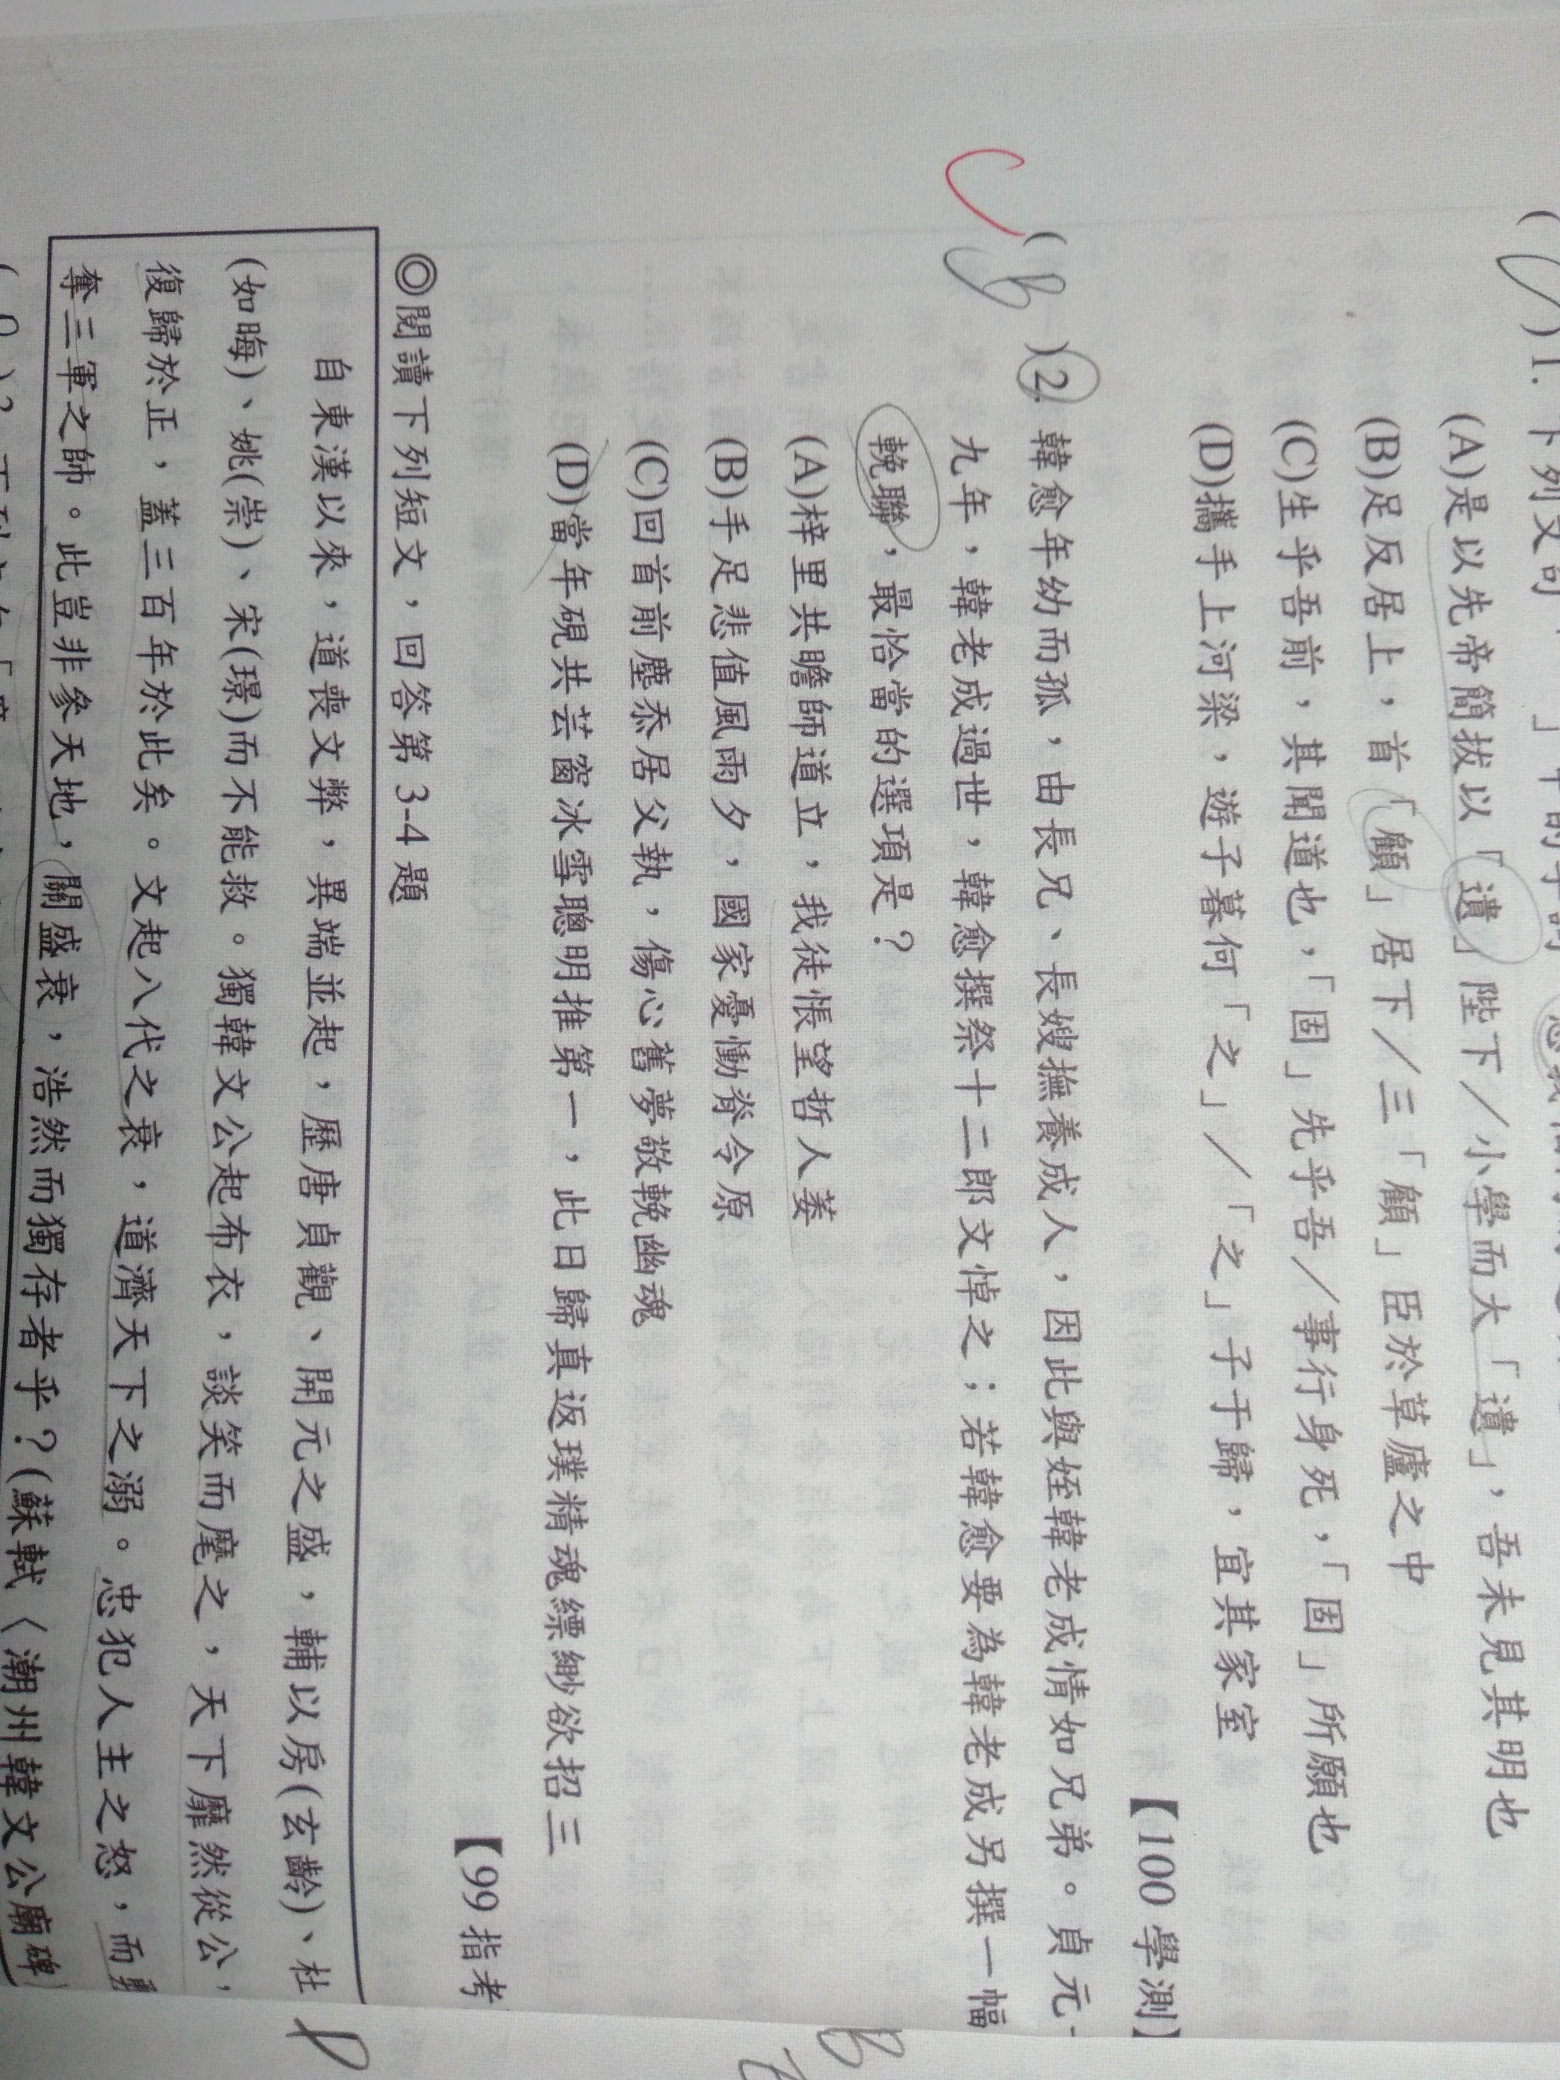 (A)是以先帝簡拔以「遺」陛下／小學而大「遺」，吾未見其明也
(B)足反居上，首「顧」居下／三「顧」臣於草廬之中
(C)生乎吾前，其聞道也，「固」先乎吾／事行身死，「固」所願也
(D)攜手上河梁，遊子暮何「之」／「之」子于歸，宜其家室
【100 學測】
( B )2. 韓愈年幼而孤，由長兄、長嫂撫養成人，因此與姪韓老成情如兄弟。貞元
九年，韓老成過世，韓愈撰祭十二郎文悼之；若韓愈要為韓老成另撰一幅
輓聯，最恰當的選項是？
(A)梓里共瞻師道立，我徒悵望哲人萎
(B)手足悲值風雨夕，國家憂慟脊令原
(C)回首前塵忝居父執，傷心舊夢敬輓幽魂
(D)當年硯共芸窗冰雪聰明推第一，此日歸真返璞精魂縹緲欲招三
【99 指考
◎閱讀下列短文，回答第 3-4 題
自東漢以來，道喪文弊，異端並起，歷唐貞觀、開元之盛，輔以房(玄齡)、杜
(如晦)、姚(崇)、宋(璟)而不能救。獨韓文公起布衣，談笑而麾之，天下靡然從公，
復歸於正，蓋三百年於此矣。文起八代之衰，道濟天下之溺。忠犯人主之怒，而勇
奪三軍之帥。此豈非參天地，關盛衰，浩然而獨存者乎？(蘇軾〈潮州韓文公廟碑
B
D